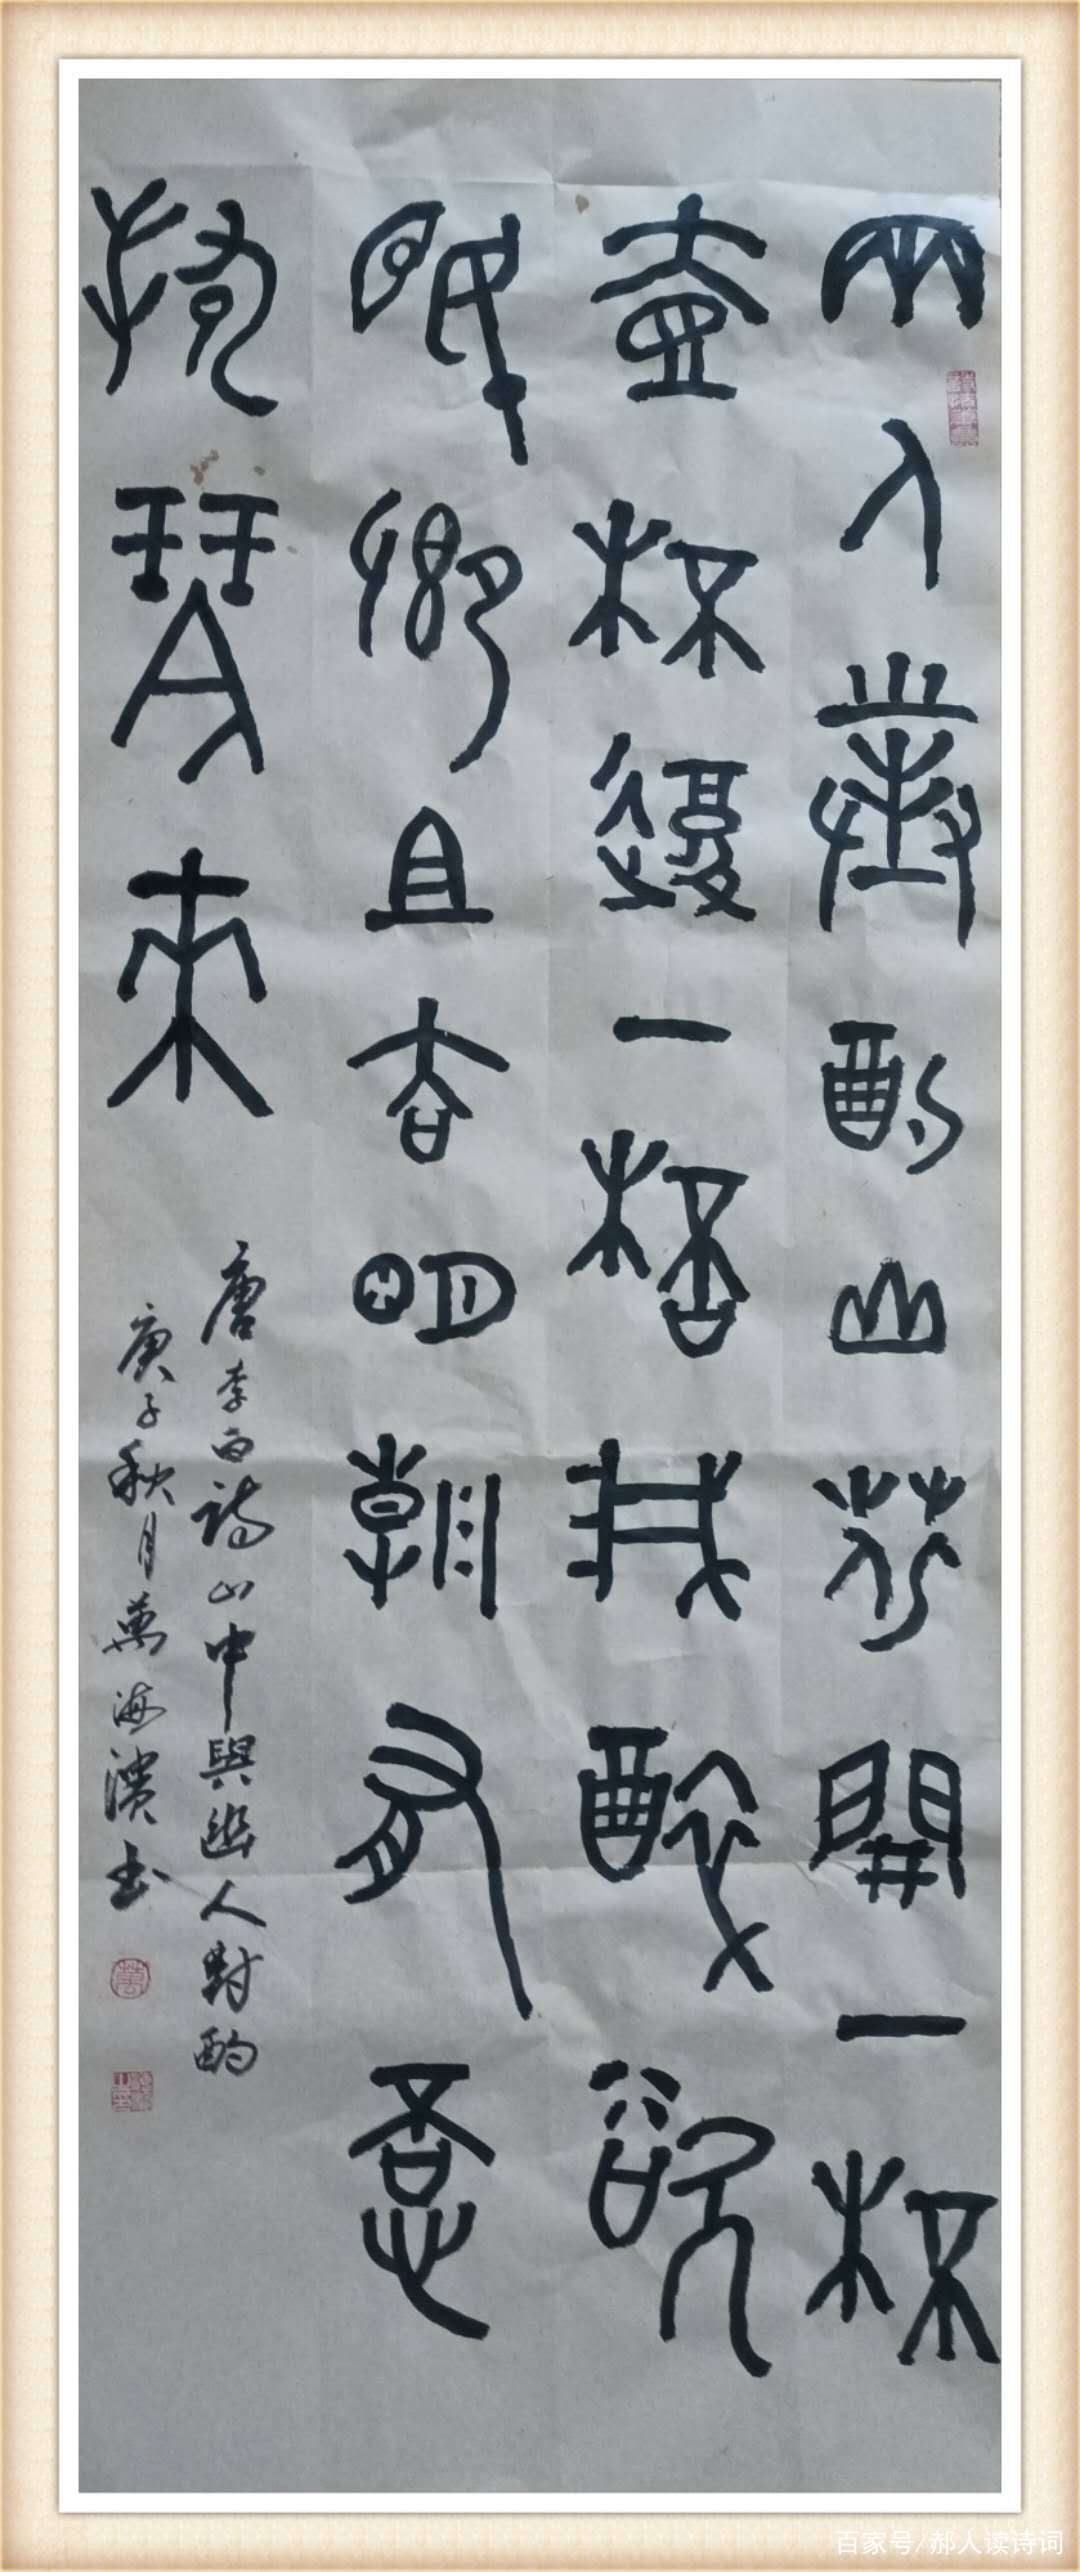 兩人對酌山花開一杯
壹杯復一杯我醉欲
眠卿且去明朝有意
抱琴來
唐李白詩山中與幽人對酌
庚子秋月萬海濱书
百家号/郝人读诗词